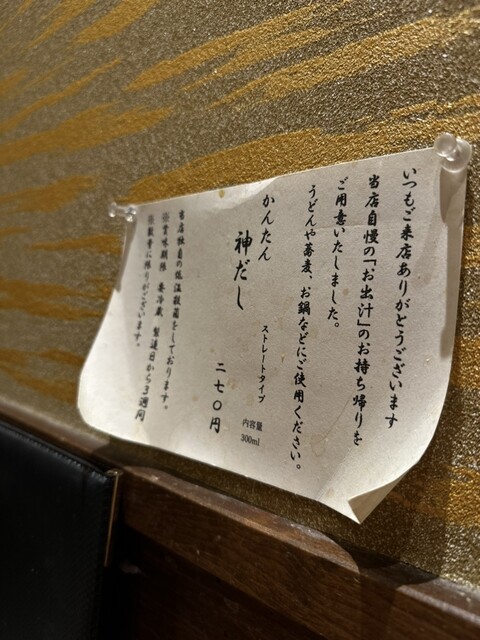 いつもご来店ありがとうございます
当店自慢の「お出汁」のお持ち帰りを
ご用意いたしました。
うどんや蕎麦、お鍋などにご使用ください。
かんたん
神だし
ストレートタイプ
内容量
300ml
二七〇円
当店独自の低温殺菌をしております。
※賞味期限 要冷蔵 製造日から3週間
※数量に限りがございます。